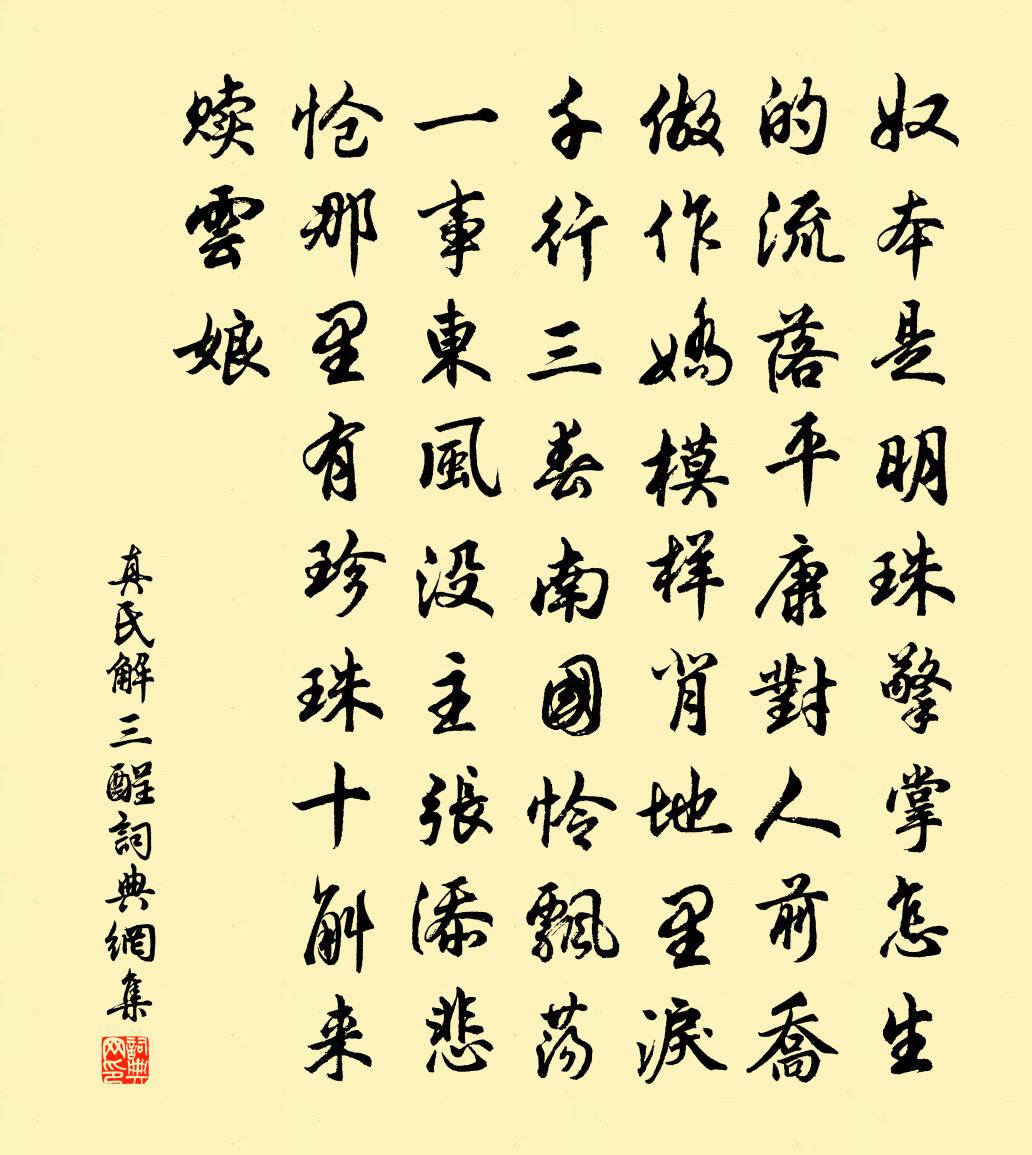 奴本是明珠擎掌怎生
的流落平康對人前喬
做作嬌模样背地里淚
千行三春南國怜飄荡
一事東風没主張添悲
怆那里有珍珠十斛来
赎雲娘
真氏解三酲詞典網集
詞典网印